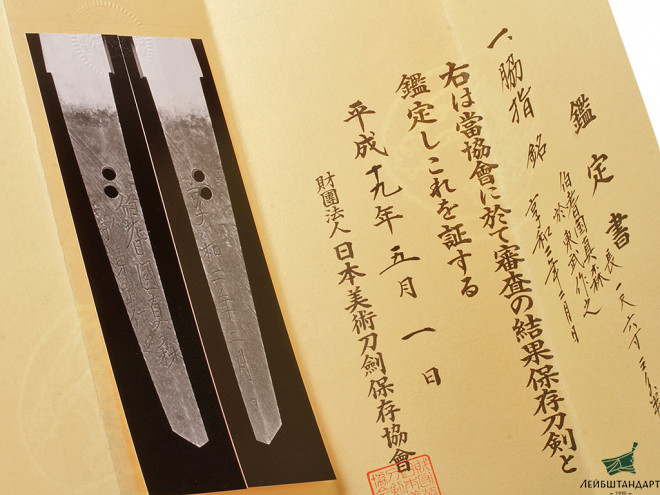 鑑定書
一、脇指 銘
伯耆国真森
於東武作之
享和二年二月日
長一尺六寸
右は當協會に於て審査の結果保存刀剣と
鑑定しこれを証する
平成十九年五月一日
財團法人日本美術刀劍保存協會
伯耆国真森
享和二年二月日
ЛЕЙБШТАНДАРТ